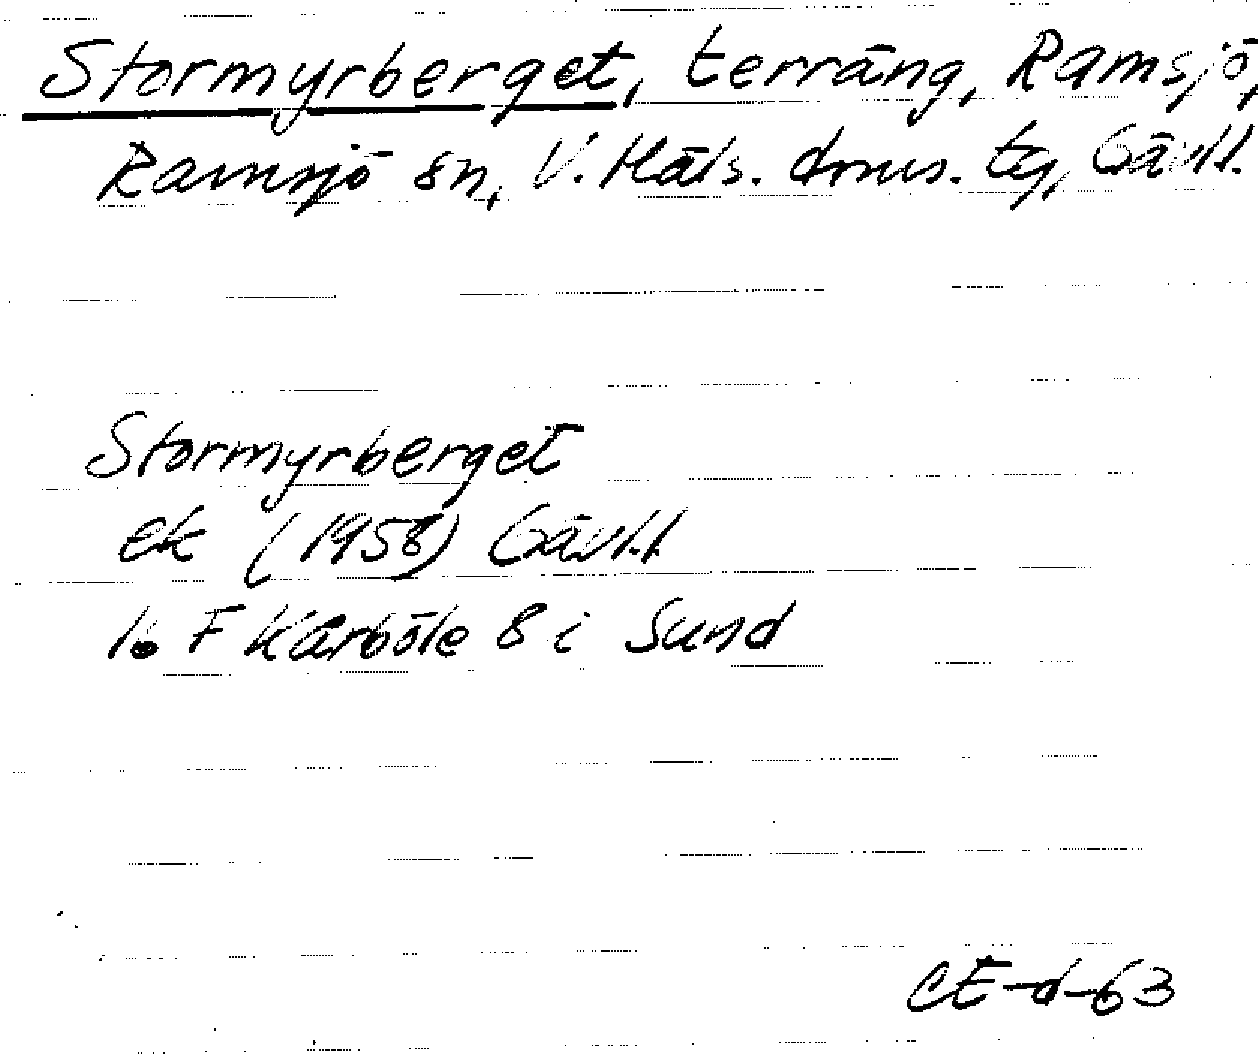 Stormyrberget, terräng, Ramsjö,
Ramsjö sn, V. Häls. doms. tg, Gävl.l.
Stormyrberget
ek (1958) Gävl.l
16 F Kårböle 8 i Sund
CE-d-63